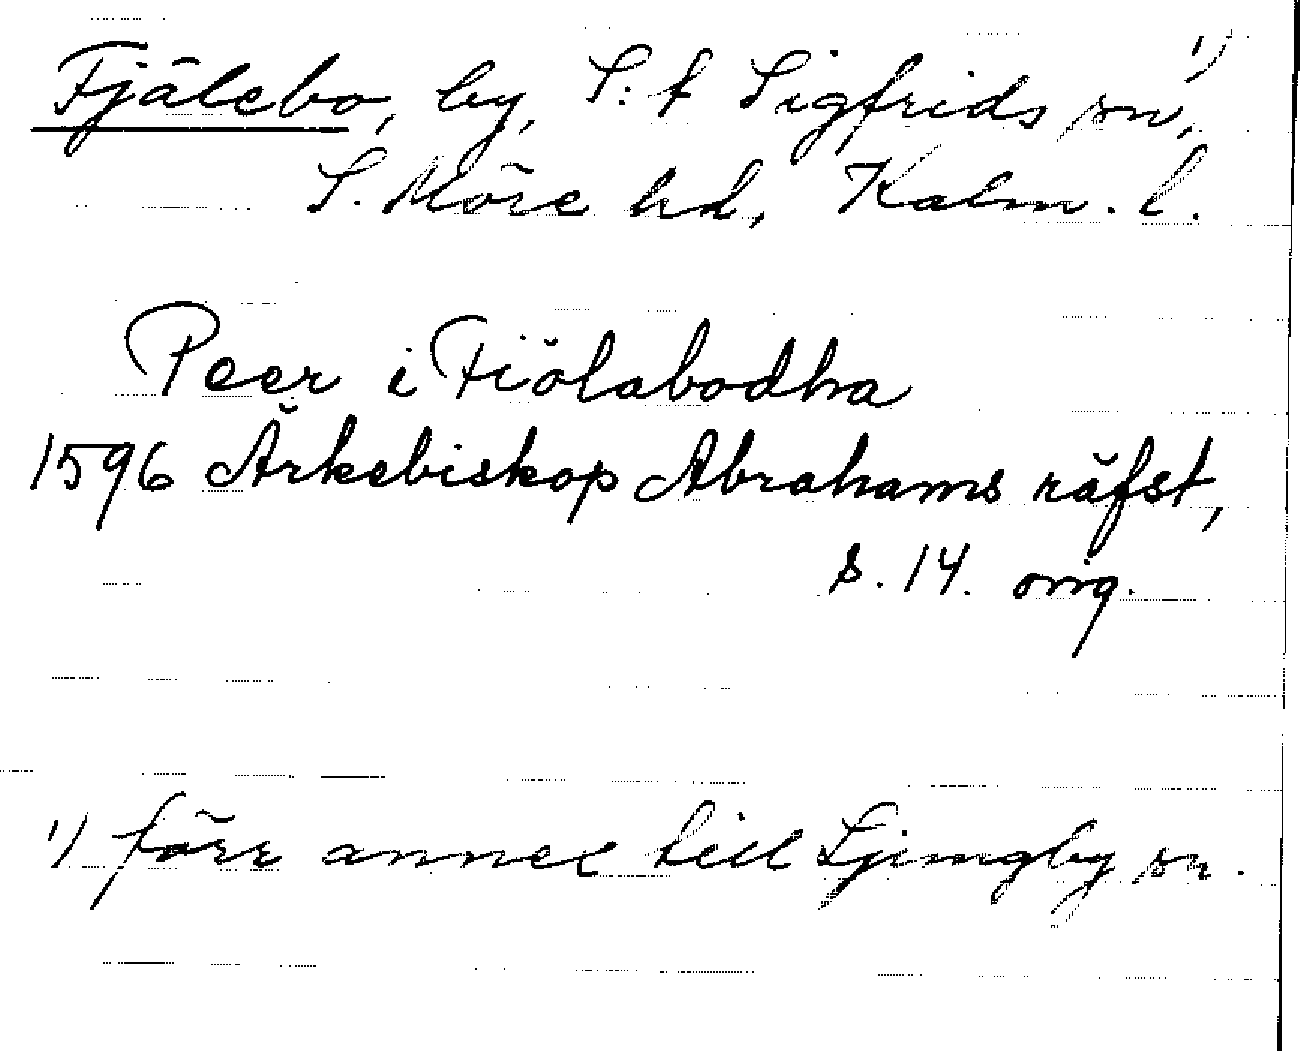 Fjälebo, by, S:t Sigfrids sn,¹⁾
S. Möre hd, Kalm. l.
Peer i Fiölabodha
1596 Ärkebiskop Abrahams räfst,
s. 14. orig.
1) förr annex till Ljungby sn.